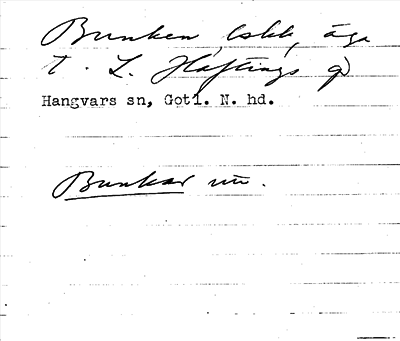 Bunken, Lskh, äga
t. L. Haftings gd
Hangvars sn, Gotl. N. hd.
Bunkar nu.